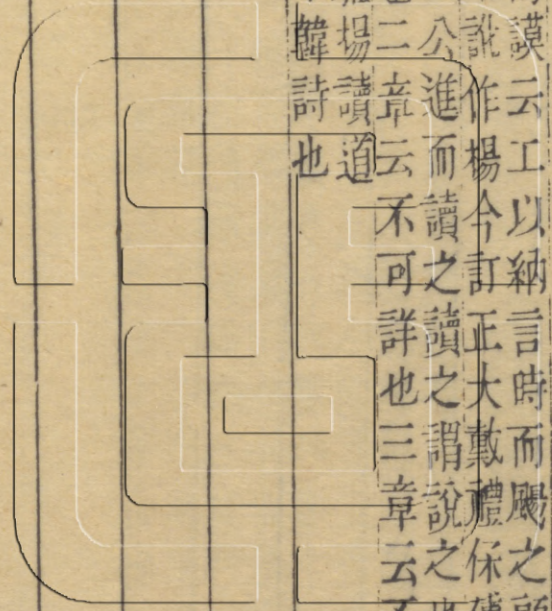 謨云工以納言時而颺之所
訛作楊今訂正大戴禮保
公進而讀之讀之謂說之
二章云不可詳也三章云不
揚讀道
韓詩也